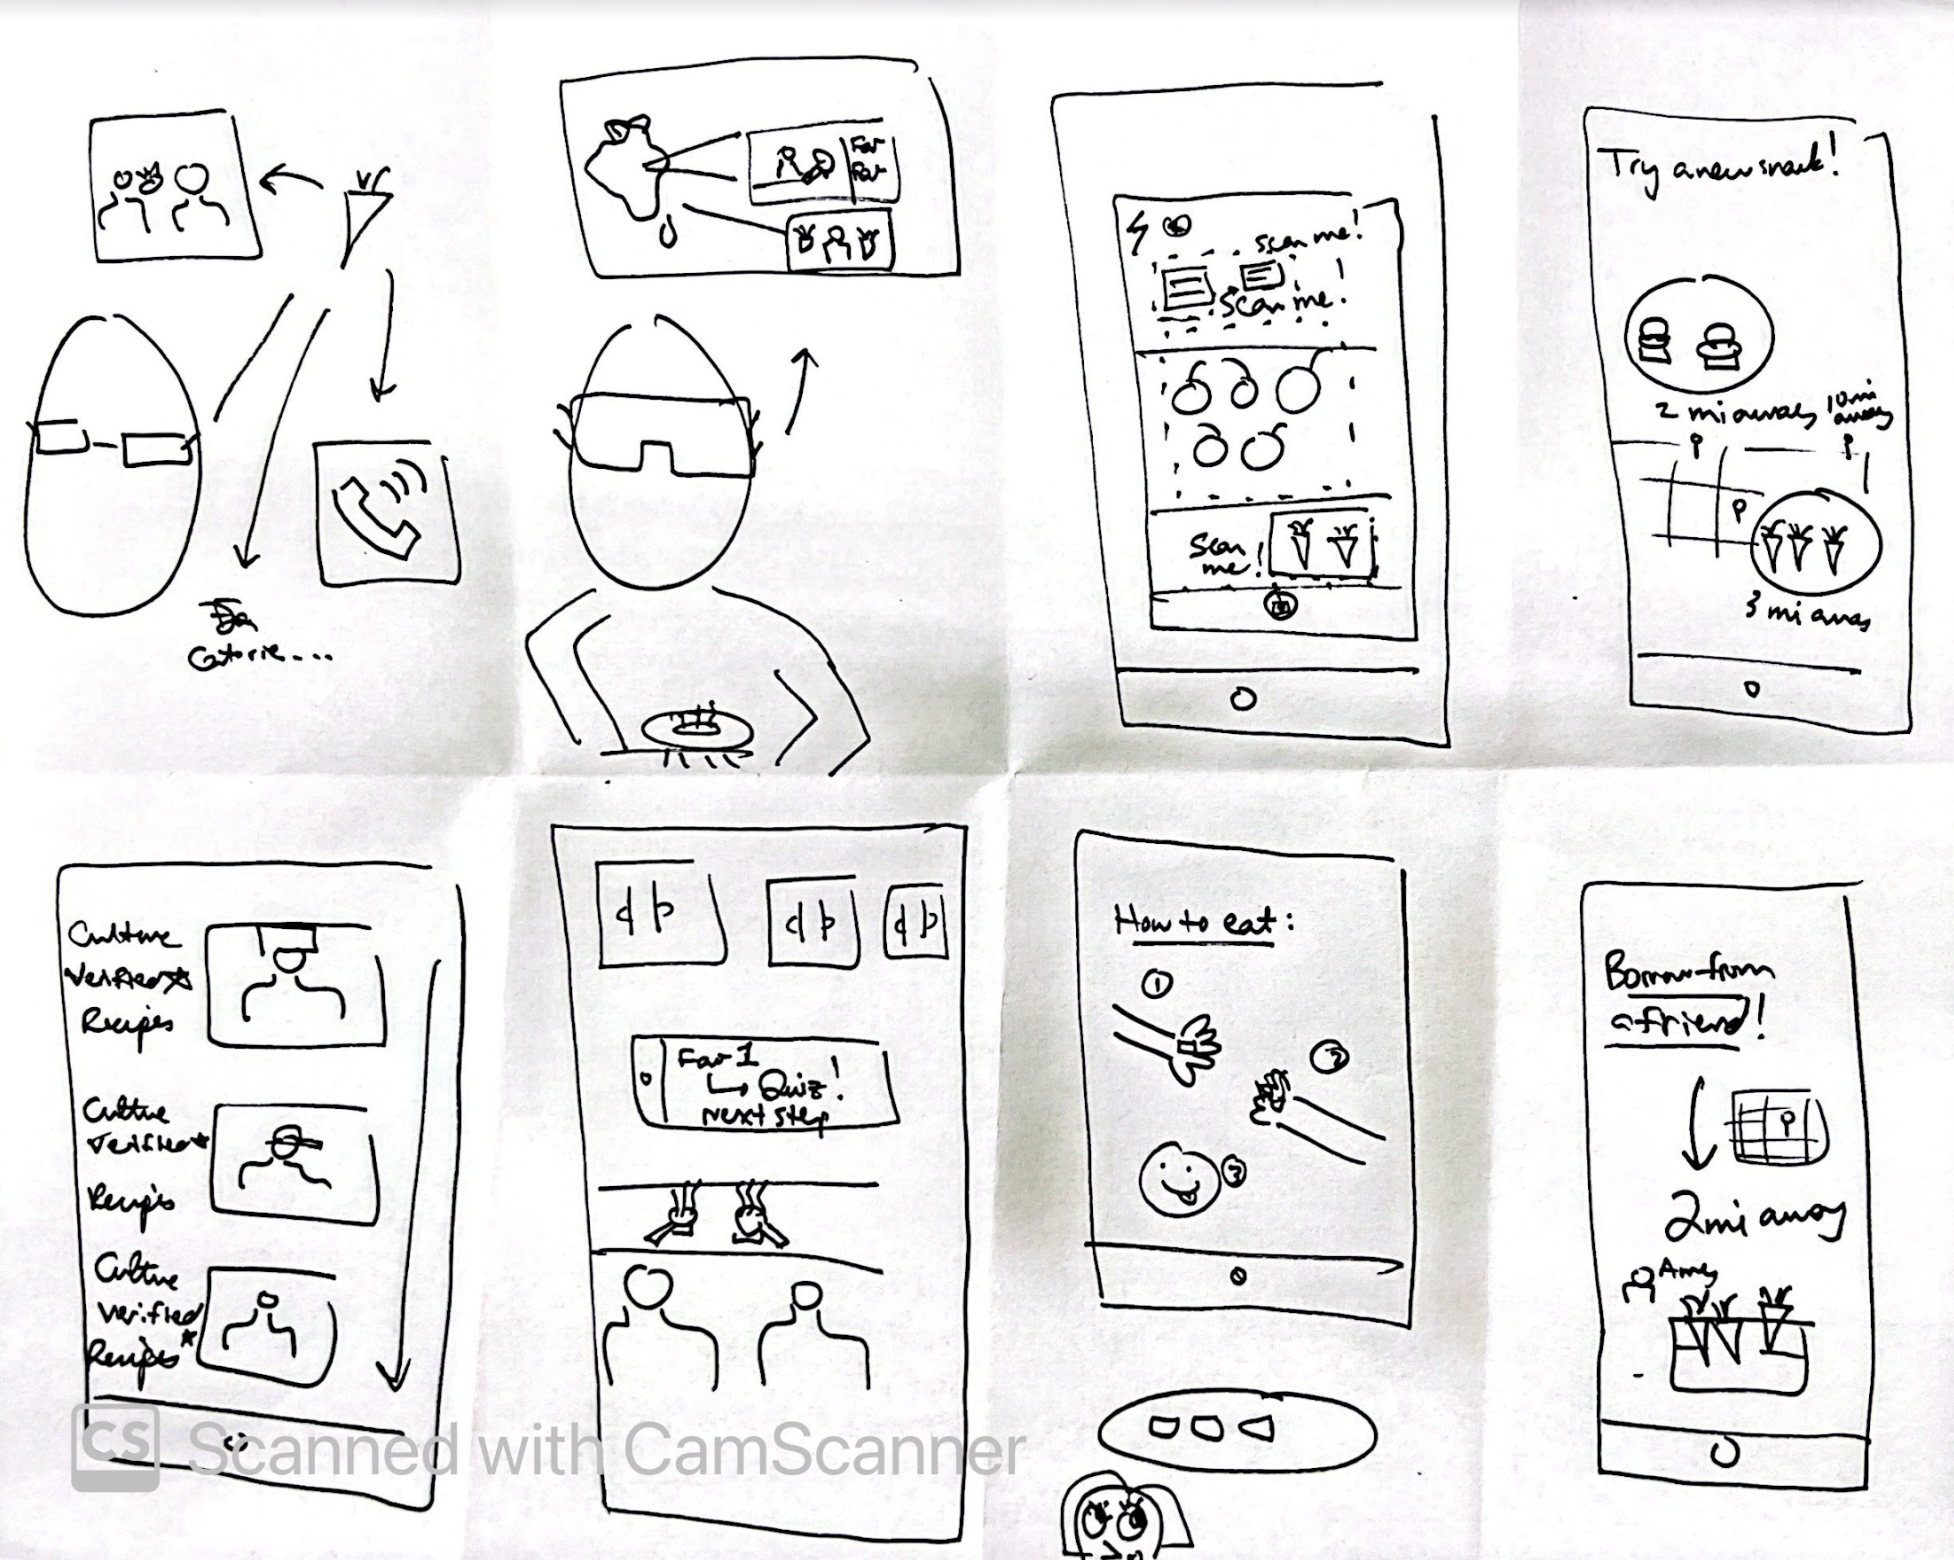 Calorie....
Far
Far
scan me!
scan me!
Scan
me!
Try a new snack!
2 mi away
10 mi
away
3 mi away
Culture
Verified
Recipes
Culture
Verified
Recipes
Culture
Verified
Recipes
Far 1
Quiz!
next step
How to eat:
1
2
3
Borrow from
a friend!
2 mi away
CS Scanned with CamScanner